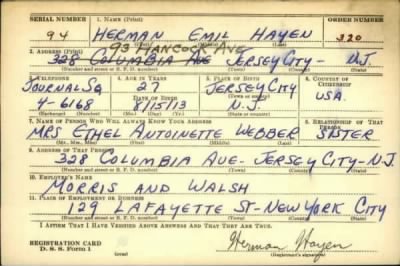 SERIAL NUMBER 1. NAME (Print) ORDER NUMBER
94 HERMAN EMIL HAYEN 320
(First) (Middle) (Last)
93 HANCOCK AVE
2. ADDRESS (Print)
328 COLUMBIA AVE JERSEY CITY - N.J.
(Number and street or R. F. D. number) (Town) (County) (State)
3. TELEPHONE 4. AGE IN YEARS 5. PLACE OF BIRTH 6. COUNTRY OF CITIZENSHIP
JOURNAL SQ 27 JERSEY CITY
DATE OF BIRTH
4-6168 8/15/13 N.J. USA.
(Exchange) (Number) (Mo.) (Day) (Yr.) (State or country)
7. NAME OF PERSON WHO WILL ALWAYS KNOW YOUR ADDRESS 8. RELATIONSHIP OF THAT PERSON
MRS ETHEL ANTOINETTE WEBBER SISTER
(Mr., Mrs., Miss) (First) (Middle) (Last)
9. ADDRESS OF THAT PERSON
328 COLUMBIA AVE - JERSEY CITY - N.J.
(Number and street or R. F. D. number) (Town) (County) (State)
10. EMPLOYER'S NAME
MORRIS AND WALSH
11. PLACE OF EMPLOYMENT OR BUSINESS
129 LAFAYETTE ST - NEW YORK CITY
(Number and street or R. F. D. number) (Town) (County) (State)
I AFFIRM THAT I HAVE VERIFIED ABOVE ANSWERS AND THAT THEY ARE TRUE.
REGISTRATION CARD
D. S. S. Form 1
Herman Hayen
(Registrant's signature)